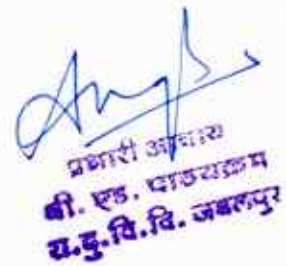 प्रभारी आचार्य
बी. एड. पाठ्यक्रम
रा.दु.वि.वि. जबलपुर